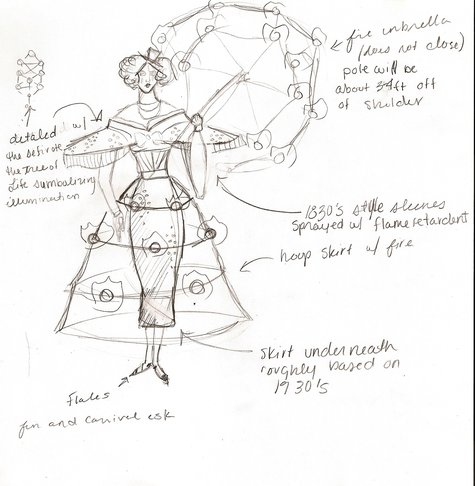 fire umbrella
(does not close)
pole will be
about ft off
of shulder
detailed w/
the sefirote
the Tree of
Life sumbalizing
illumination
1830's style sleeves
sprayed w/ flame retardent
hoop skirt w/ fire
skirt underneath
roughly based on
1930's
Flates
fun and carnival esk